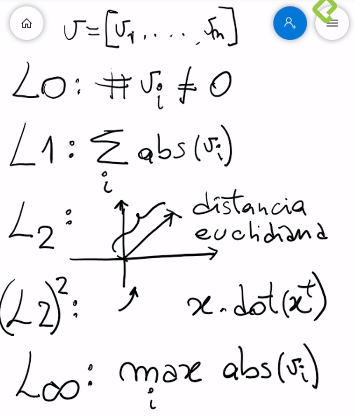 v = [v₁, . . . , vₙ]
L0: # vᵢ ≠ 0
L1: Σᵢ abs(vᵢ)
L2: distancia
euclidiana
(L2)²: x.dot(xᵗ)
L∞: maxᵢ abs(vᵢ)